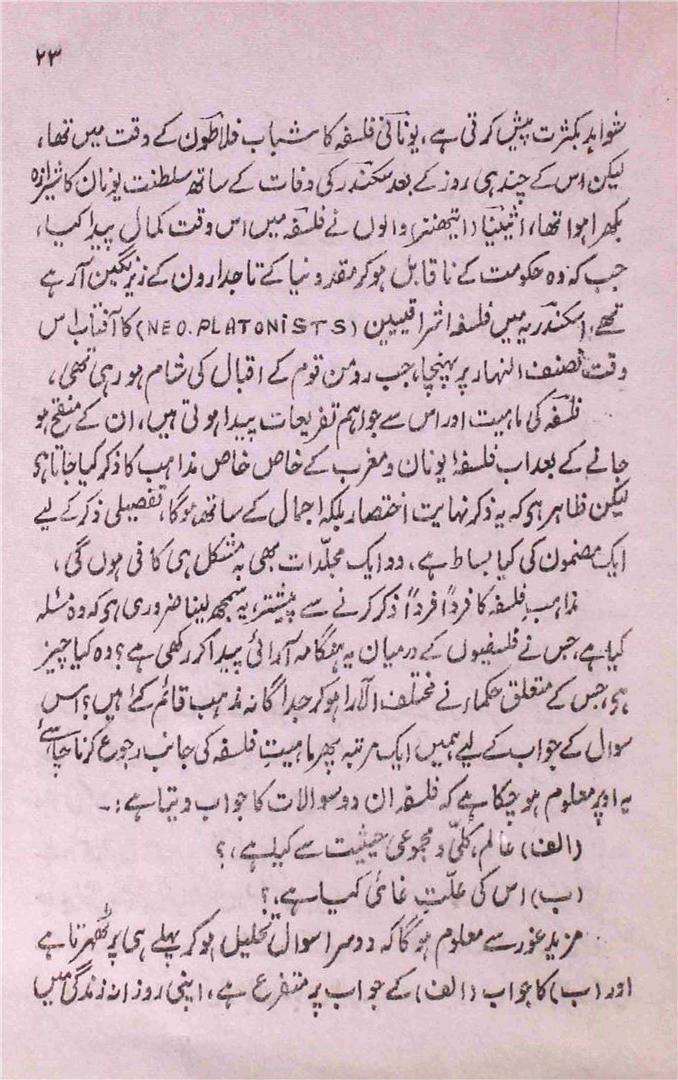 ۲۳
شواہد بکثرت پیش کرتی ہے، یونانی فلسفہ کا شباب فلاطون کے وقت میں تھا،
لیکن اس کے چند ہی روز کے بعد سکندر کی وفات کے ساتھ سلطنت یونان کا شیرازہ
بکھرا ہوا تھا، اثینیا (ایتھنز) والوں نے فلسفہ میں اس وقت کمال پیدا کیا،
جب کہ وہ حکومت کے ناقابل ہوکر مقدونیا کے تاجدارون کے زیر نگین آرہے
تھے، اسکندریہ میں فلسفہ اشراقیین (NEO.PLATONiSTS) کا آفتاب اس
وقت نصف النہار پر پہنچا، جب رومن قوم کے اقبال کی شام ہو رہی تھی،
فلسفہ کی ماہیت اور اس سے جو اہم تفریعات پیدا ہوتی ہیں، ان کے منقح ہو
جانے کے بعد اب فلسفۂ یونان و مغرب کے خاص خاص مذاہب کا ذکر کیا جاتا ہی
لیکن ظاہر ہی کہ یہ ذکر نہایت اختصار بلکہ اجمال کے ساتھ ہوگا، تفصیلی ذکر کے لیے
ایک مضمون کی کیا بساط ہے، دو ایک مجلّدات بھی بہ مشکل ہی کافی ہوں گی،
مذاہب فلسفہ کا فرداً فرداً ذکر کرنے سے پیشتر، یہ سمجھ لینا ضروری ہی کہ وہ مسئلہ
کیا ہے، جس نے فلسفیوں کے درمیان یہ ہنگامہ آرائی پیدا کر رکھی ہے؟ وہ کیا چیز
ہی، جس کے متعلق حکماء نے مختلف الآرا ہوکر جداگانہ مذہب قائم کئے ہیں؟ اس
سوال کے جواب کے لیے ہمیں ایک مرتبہ پھر ماہیت فلسفہ کی جانب رجوع کرنا چاہئے
یہ اوپر معلوم ہو چکا ہے کہ فلسفہ ان دو سوالات کا جواب دیتا ہے:۔
(الف) عالم، کلّی و مجموعی حیثیت سے کیا ہے،؟
(ب) اس کی علّتِ غائی کیا ہے،؟
مزید غور سے معلوم ہوگا کہ دوسرا سوال تحلیل ہوکر پہلے ہی پر ٹھہرتا ہے
اور (ب) کا جواب (الف) کے جواب پر متفرع ہے، اپنی روزانہ زندگی میں